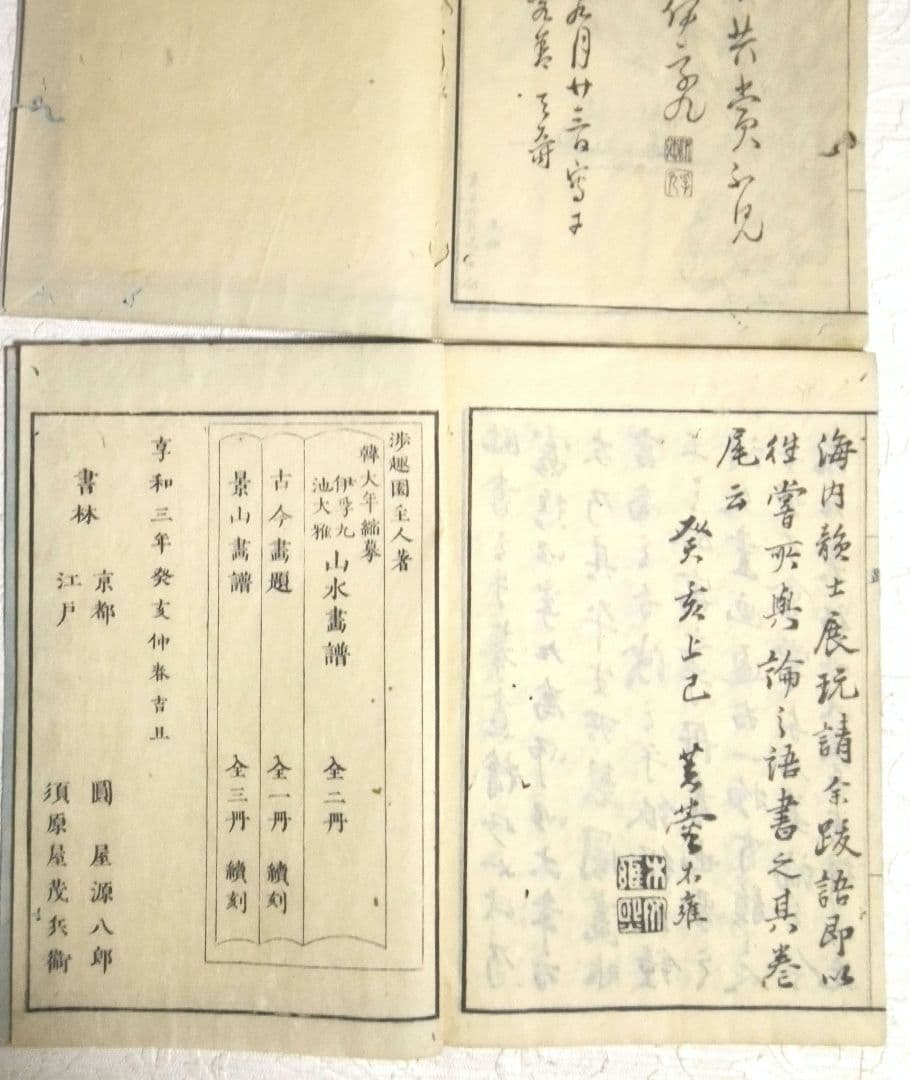 共賞不見
伊孚九
九月廿三日寫于
海内韻士展玩請余跋語即以
往嘗所與論之語書之其巻
尾云
癸亥上巳
木雍
渉趣園主人著
韓大年縮摹
伊孚九
池大雅
山水畫譜 全二冊
古今畫題 全一冊 續刻
景山畫譜 全三冊 續刻
享和三年癸亥仲春吉旦
書林
京都 圓屋源八郎
江戸 須原屋茂兵衞